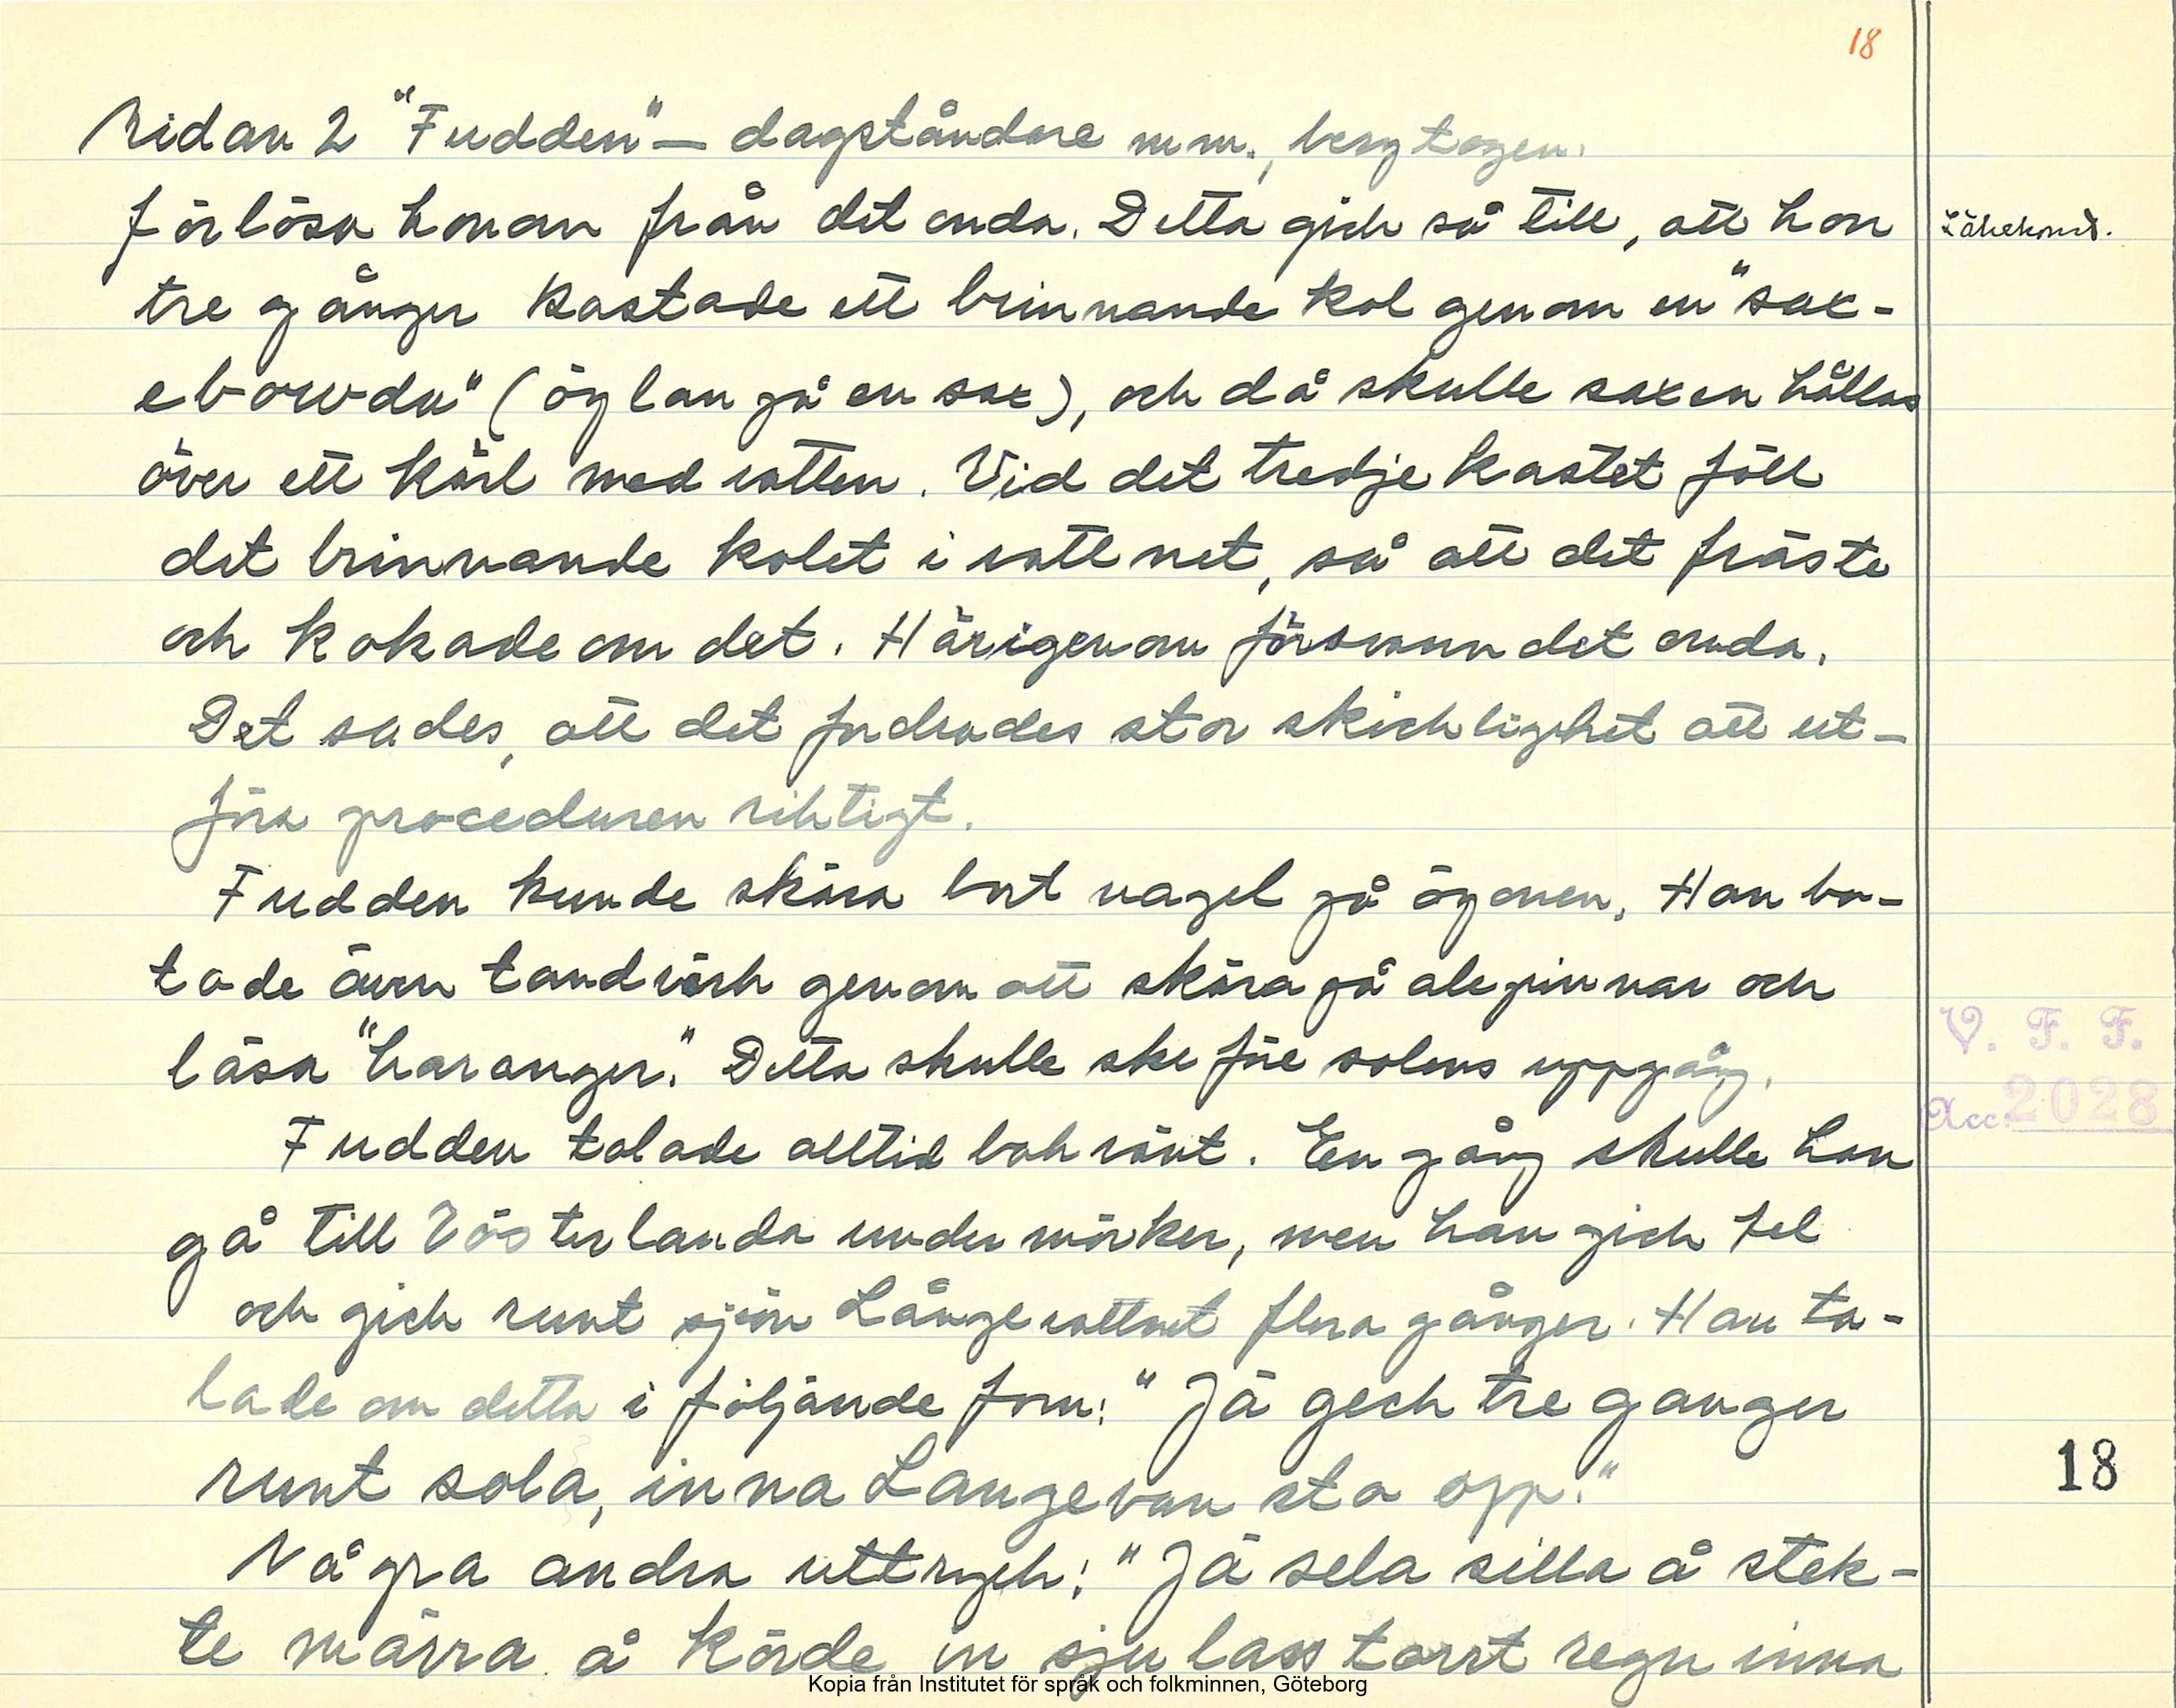 18
Sidan 2 "Fudden" — dagståndare m.m., bergtagen.
förlösa honom från det onda. Detta gick så till, att hon
Läkekonst.
tre gånger kastade ett brinnande kol genom en "sax-
ebowda" (öglan på en sax), och då skulle saxen hållas
över ett kärl med vatten. Vid det tredje kastet föll
det brinnande kolet i vattnet, så att det fräste
och kokade om det. Härigenom försvann det onda.
Det sades, att det fordrades stor skicklighet att ut-
föra proceduren riktigt.
Fudden kunde skära bort vagel på ögonen. Han bo-
tade även tandvärk genom att skära på alepinnar och
läsa "haranger." Detta skulle ske före solens uppgång.
V. F. F.
Acc. 2028
Fudden talade alltid bakvänt. En gång skulle han
gå till Västerlanda under mörker, men han gick fel
och gick runt sjön Långevattnet flera gånger. Han ta-
lade om detta i följande form: "Jä gech tre ganger
runt sola, inna Langevan sto opp."
18
Några andra uttryck: "Jä sela silla å stek-
te märra å körde in sju lass torrt regn inna
Kopia från Institutet för språk och folkminnen, Göteborg